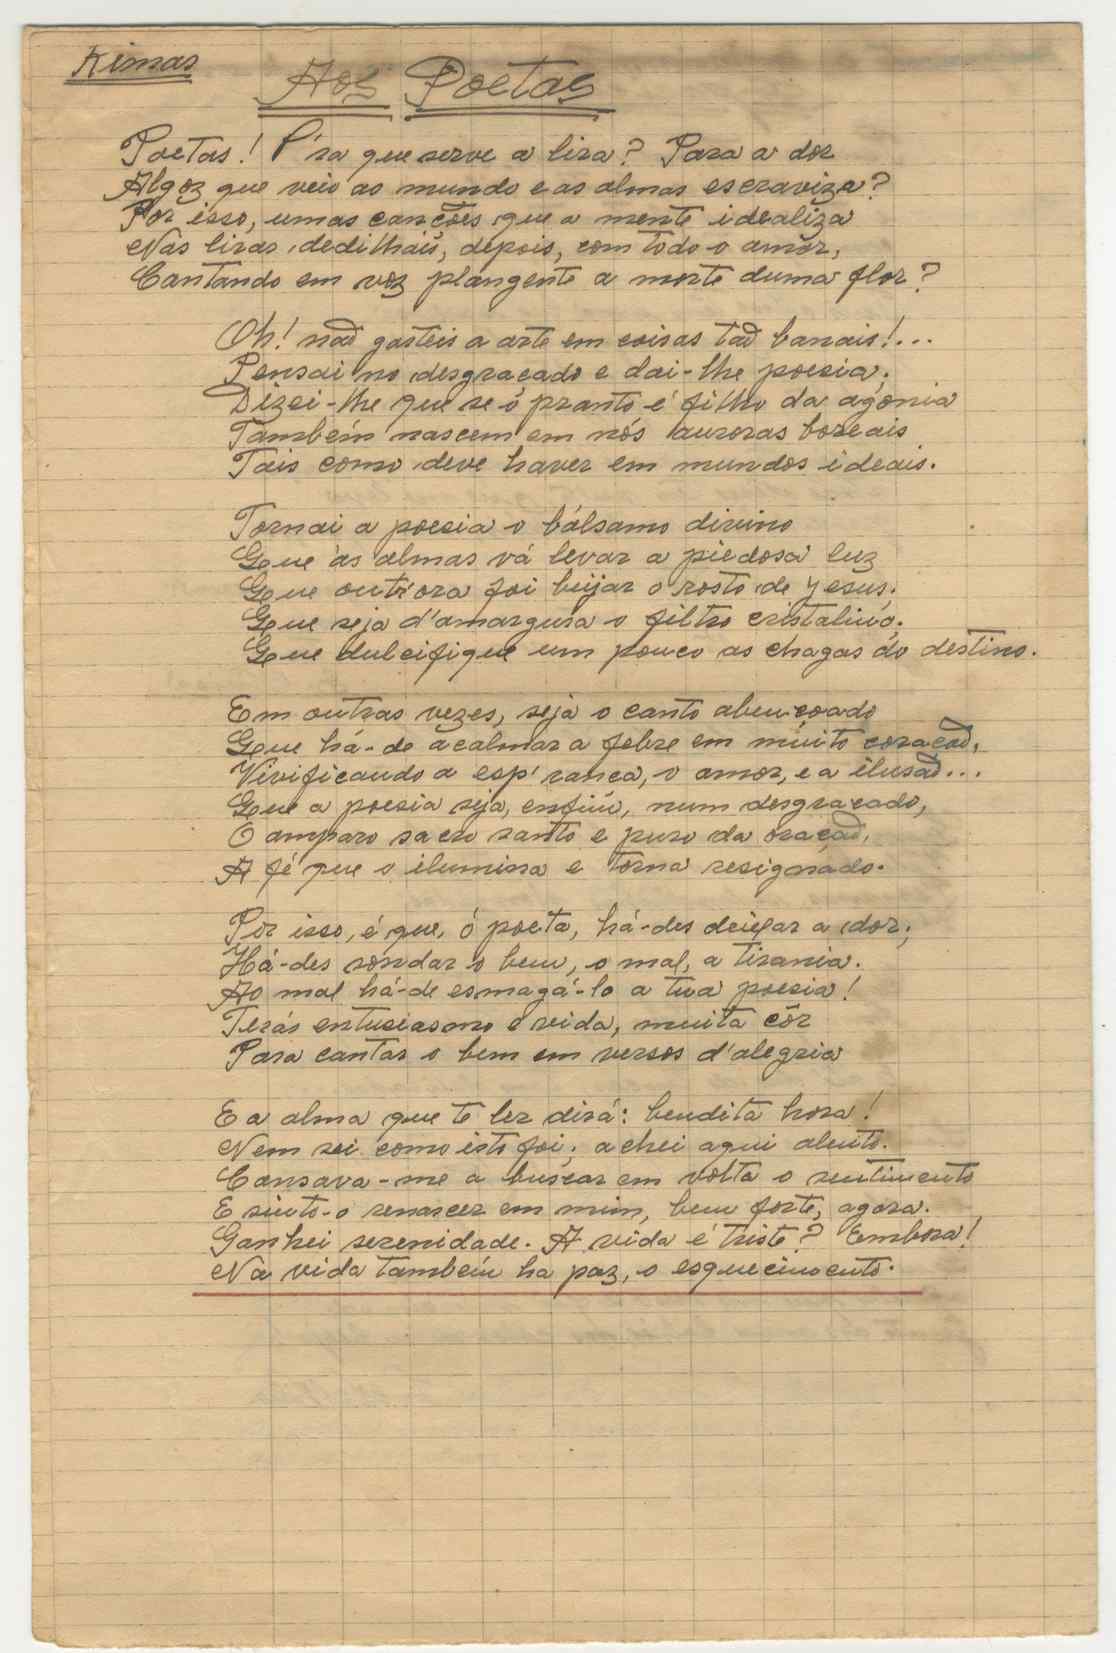 Rimas
Aos Poetas
Poetas! P'ra que serve a lira? Para a dor
Algoz que veio ao mundo e as almas escraviza?
Por isso, umas canções que a mente idealiza
Nas liras dedilhais, depois, com todo o amôr,
Cantando em voz plangente a morte duma flor?
Oh! não gasteis a arte em coisas tão banais!...
Pensai no desgraçado e dai-lhe poesia;
Dizei-lhe que se o pranto é filho da agonia
Também nascem em nós auroras boreais
Tais como deve haver em mundos ideais.
Tornai a poesia o bálsamo divino
Que às almas vá levar a piedosa luz
Que outr'ora foi beijar o rosto de Jesus;
Que seja d'amargura o filtro cristalino;
Que dulcifique um pouco as chagas do destino.
Em outras vezes, seja o canto abençoado
Que há-de acalmar a febre em muito coração,
Vivificando a esp'rança, o amor, e a ilusão...
Que a poesia seja, enfim, num desgraçado,
O amparo sacro santo e puro da oração,
A fé que o ilumina e torna resignado.
Por isso, é que, ó poeta, há-des deixar a dor;
Há-des sondar o bem, o mal, a tirania.
Ao mal há-de esmagá-lo a tua poesia!
Terás entusiasmo e vida, muita côr
Para cantar o bem em versos d'alegria
E a alma que te ler dirá: bendita hora!
Nem sei como isto foi; achei aqui alento.
Cansava-me a buscar em volta o sentimento
E sinto-o renascer em mim, bem forte, agora.
Ganhei serenidade. A vida é triste? Embora!
Na vida também ha paz, o esquecimento.